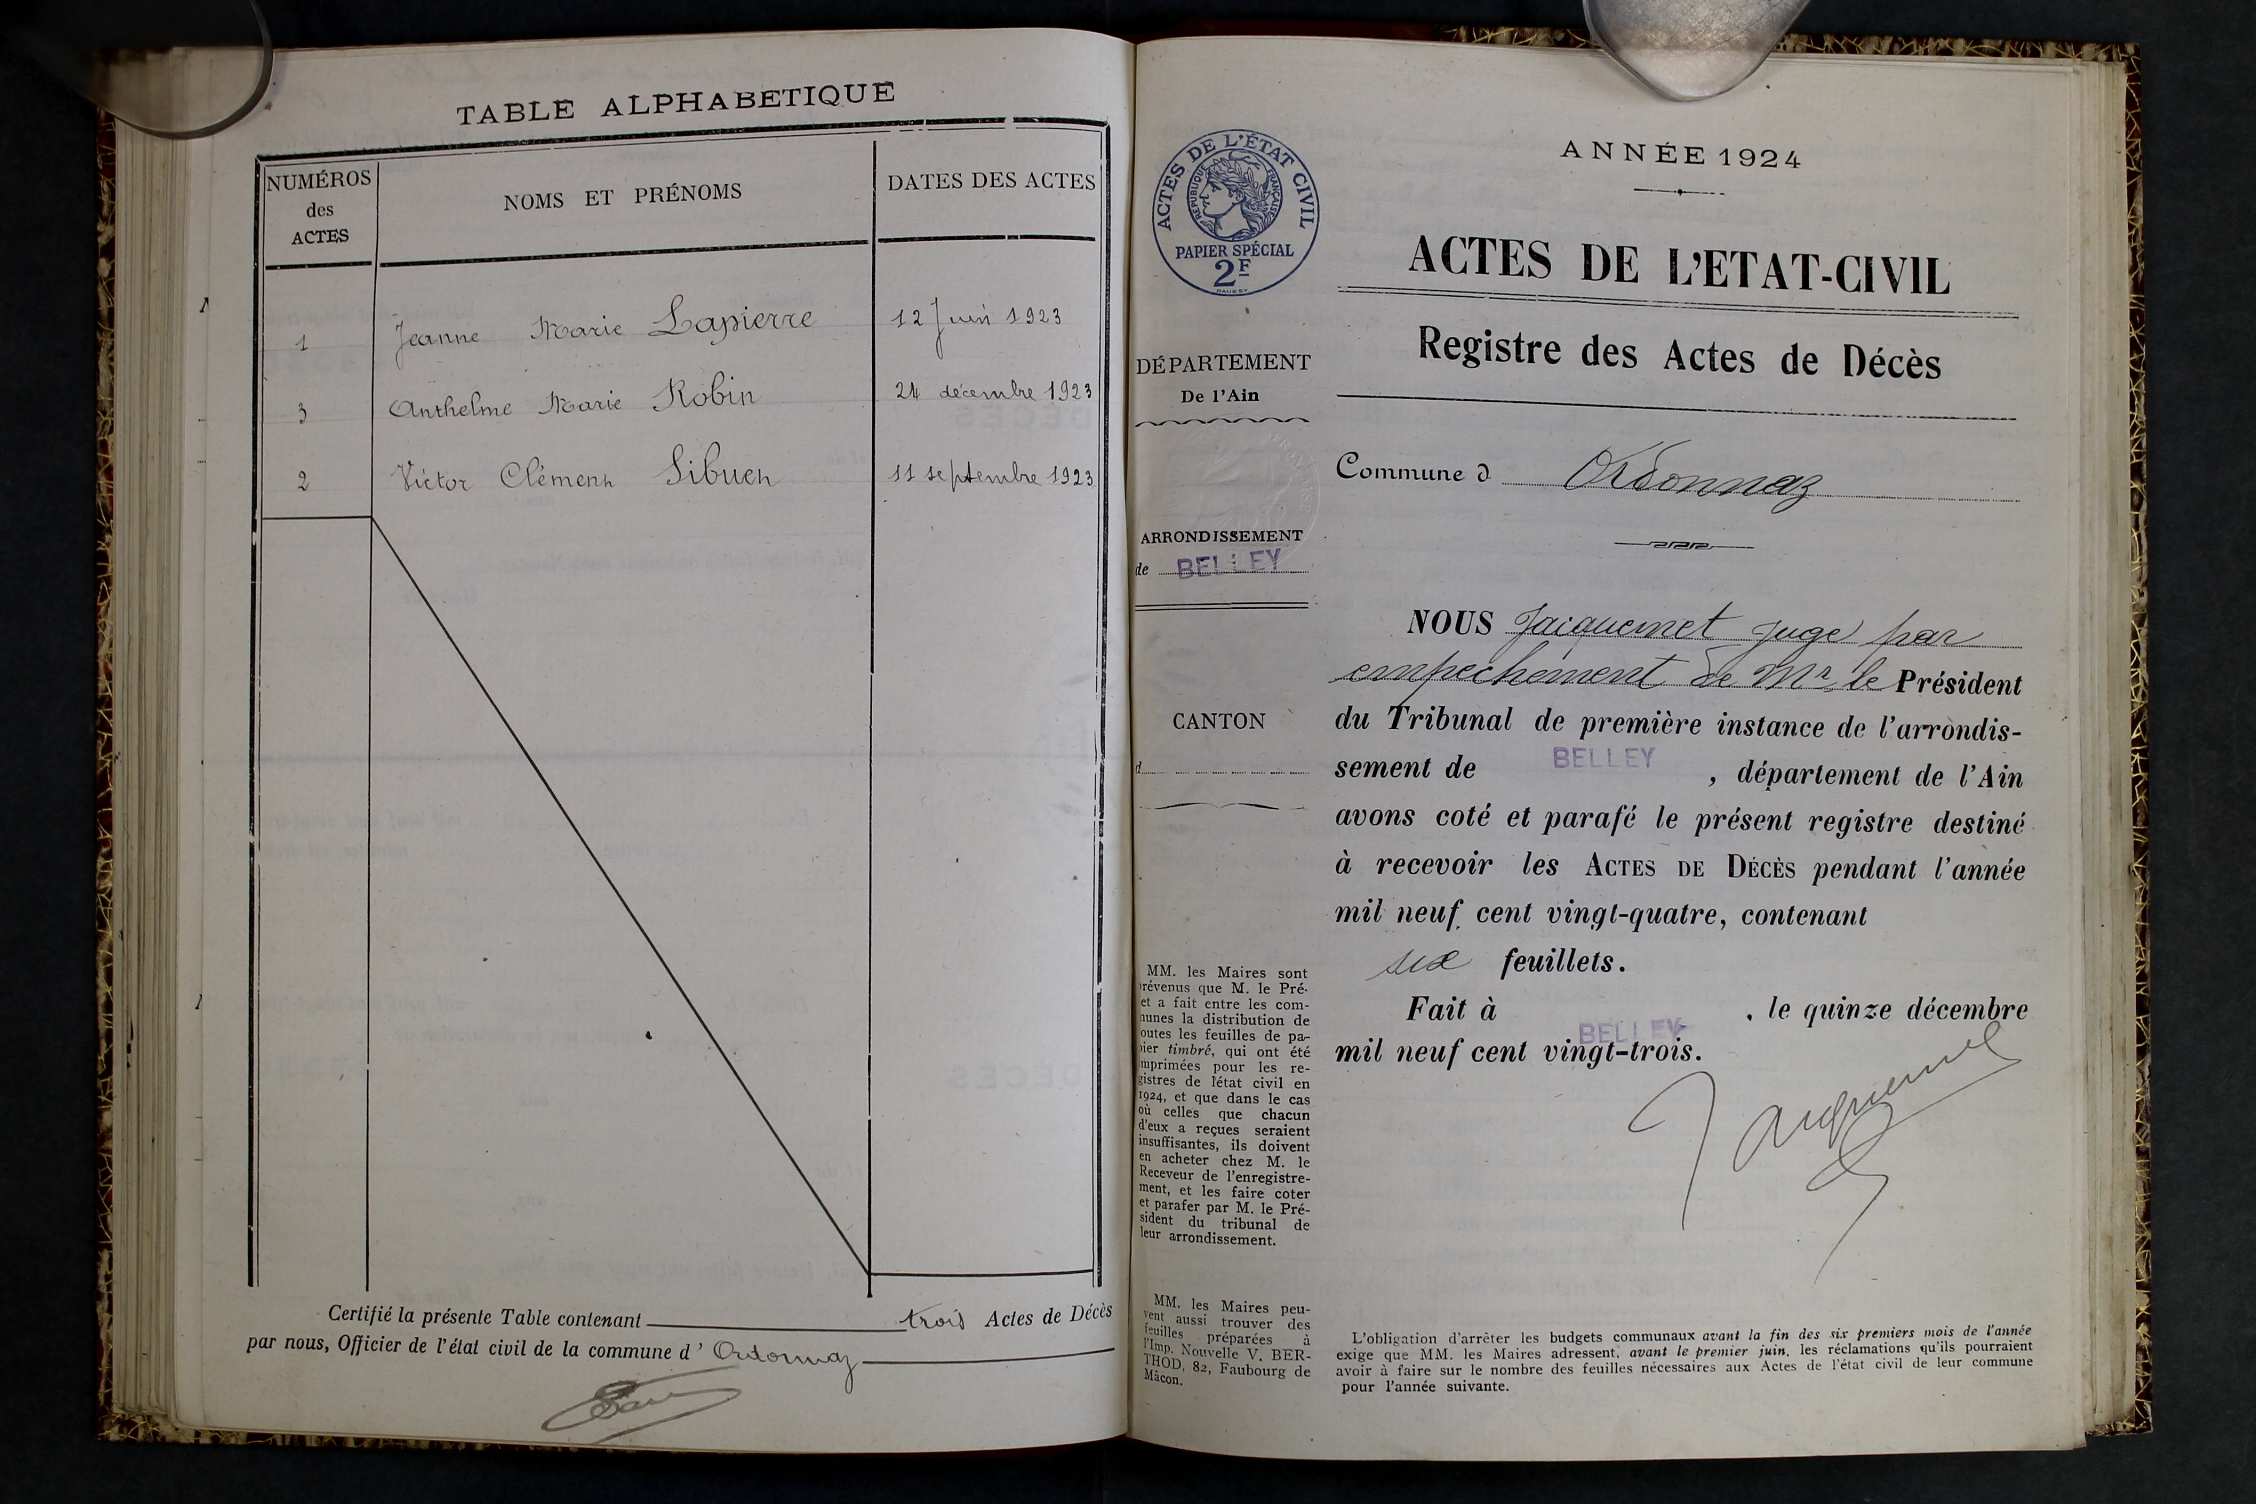 TABLE ALPHABETIQUE
NUMÉROS
des
ACTES
NOMS ET PRÉNOMS
DATES DES ACTES
1 Jeanne Marie Lapierre 12 Juin 1923
3 Anthelme Marie Robin 24 décembre 1923
2 Victor Clément Sibuet 11 septembre 1923
Certifié la présente Table contenant trois Actes de Décès
par nous, Officier de l'état civil de la commune d' Ordonnaz
ACTES DE L'ÉTAT CIVIL
RÉPUBLIQUE FRANÇAISE
PAPIER SPÉCIAL
2F
DÉPARTEMENT
De l'Ain
ARRONDISSEMENT
de BELLEY
CANTON
d
MM. les Maires sont
révenus que M. le Pré-
et a fait entre les com-
munes la distribution de
outes les feuilles de pa-
pier timbré, qui ont été
mprimées pour les re-
gistres de l'état civil en
1924, et que dans le cas
où celles que chacun
d'eux a reçues seraient
insuffisantes, ils doivent
en acheter chez M. le
Receveur de l'enregistre-
ment, et les faire coter
et parafer par M. le Pré-
sident du tribunal de
leur arrondissement.
MM. les Maires peu-
vent aussi trouver des
feuilles préparées à
l'Imp. Nouvelle V. BER-
THOD, 82, Faubourg de
Mâcon.
ANNÉE 1924
ACTES DE L'ETAT-CIVIL
Registre des Actes de Décès
Commune d Ordonnaz
NOUS Jacquemet juge par
empechement de Mr le Président
du Tribunal de première instance de l'arrondis-
sement de BELLEY, département de l'Ain
avons coté et parafé le présent registre destiné
à recevoir les ACTES DE DÉCÈS pendant l'année
mil neuf cent vingt-quatre, contenant
six feuillets.
Fait à BELLEY, le quinze décembre
mil neuf cent vingt-trois.
Jacquemet
L'obligation d'arrèter les budgets communaux avant la fin des six premiers mois de l'année
exige que MM. les Maires adressent, avant le premier juin, les réclamations qu'ils pourraient
avoir à faire sur le nombre des feuilles nécessaires aux Actes de l'état civil de leur commune
pour l'année suivante.